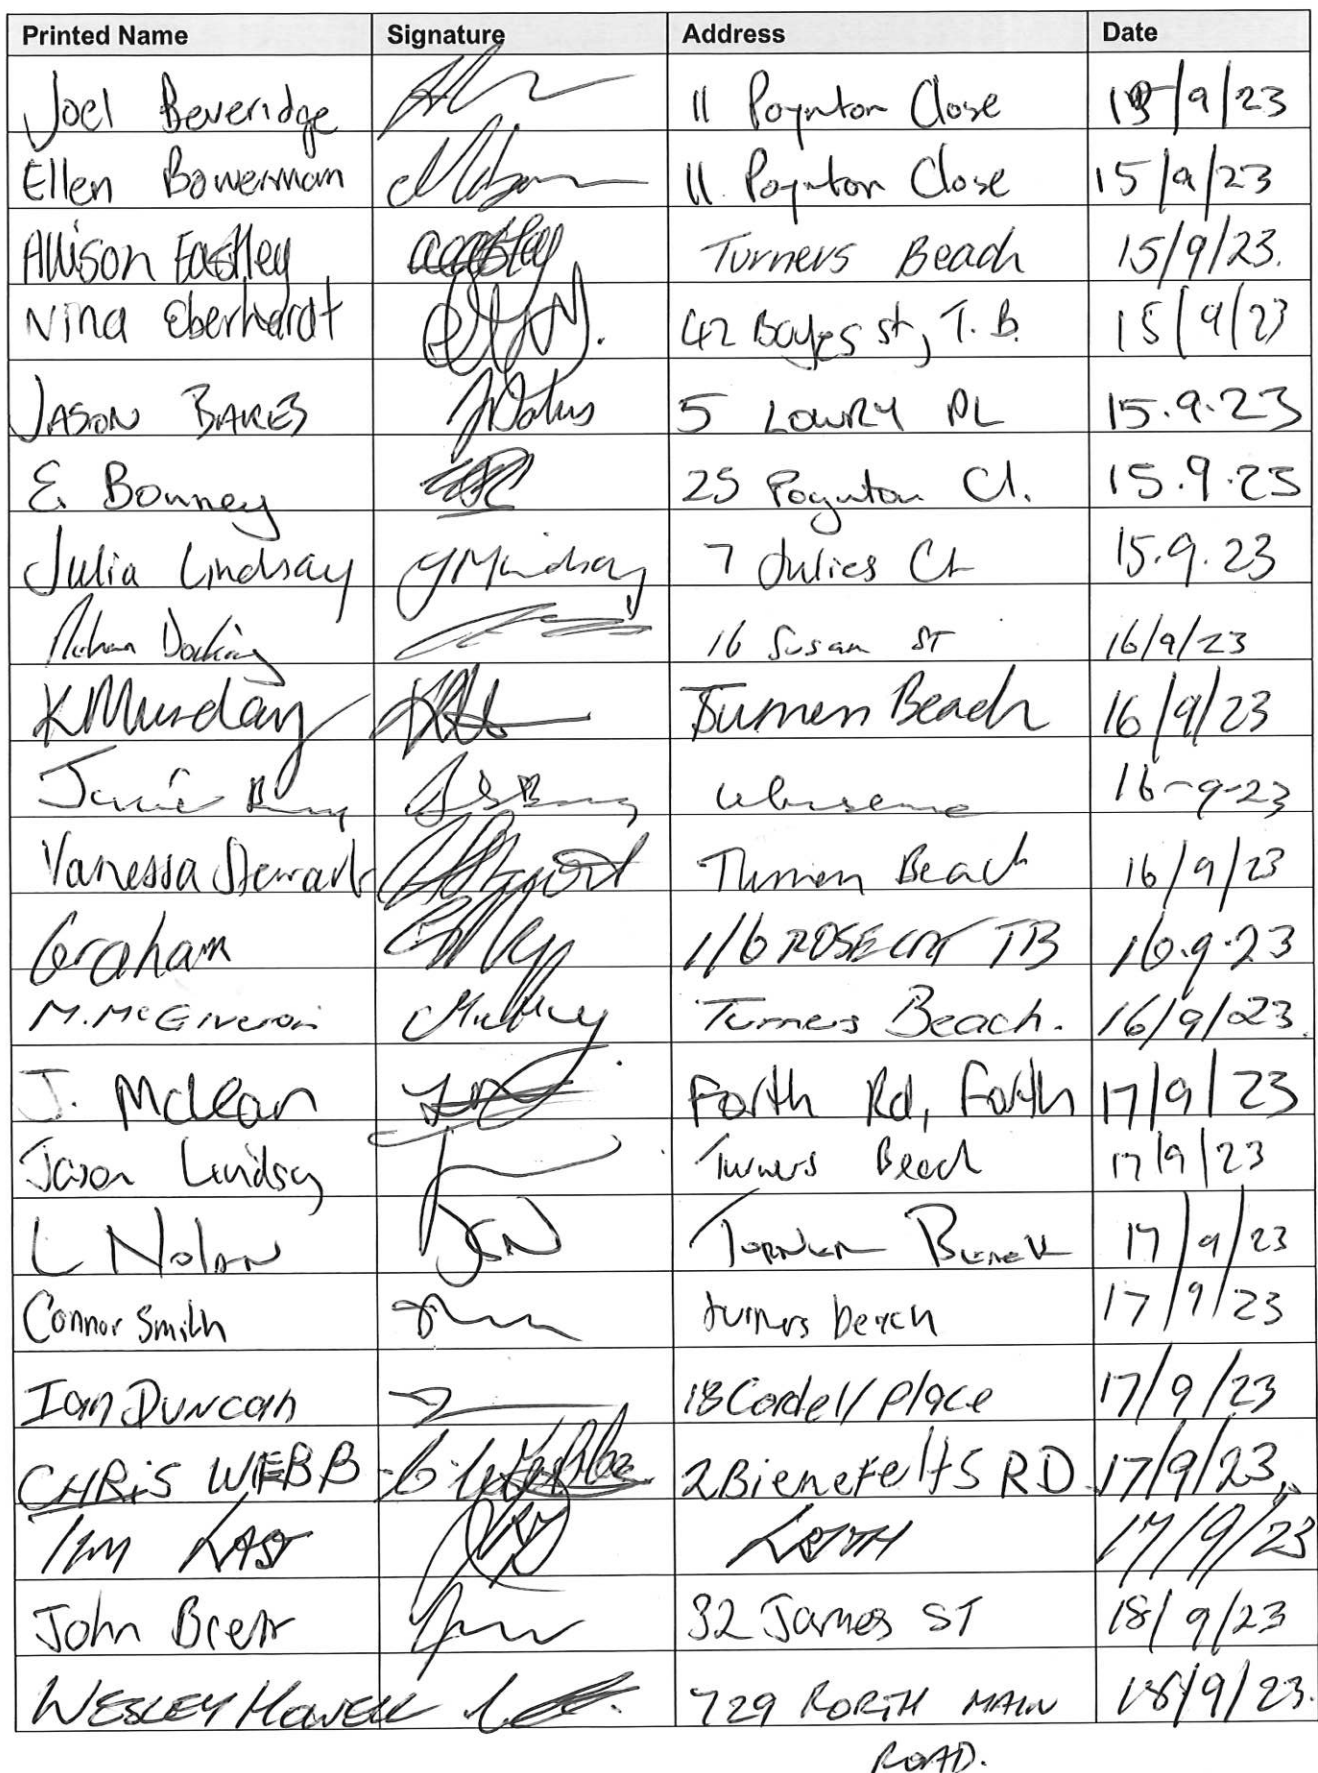 Printed Name Signature Address Date
Joel Beveridge 11 Poynton Close 15/9/23
Ellen Bowerman 11 Poynton Close 15/9/23
Allison Eastley Turners Beach 15/9/23.
Nina Eberhardt 42 Bayes st, T.B. 15/9/23
JASON BAKES 5 LOWRY PL 15.9.23
E. Bonney 25 Poynton Cl. 15.9.23
Julia Lindsay 7 Julies Ct 15.9.23
16 Susan ST 16/9/23
K Munday Turners Beach 16/9/23
16-9-23
Vanessa Stewart Turners Beach 16/9/23
Graham 1/6 TB 16.9.23
M. McGiveron Turners Beach. 16/9/23.
J. Mclean Forth Rd, Forth 17/9/23
Jason Lindsay Turners Beach 17/9/23
L Nolan Turners Beach 17/9/23
Connor Smith turners beach 17/9/23
Ian DUNCAN 18 Cordell place 17/9/23
CHRiS WEBB 2 Bienefelts RD 17/9/23
Tim LAST LEITH 17/9/23
John Brett 32 James ST 18/9/23
WESLEY HOWELL 729 FORTH MAIN 18/9/23.
ROAD.